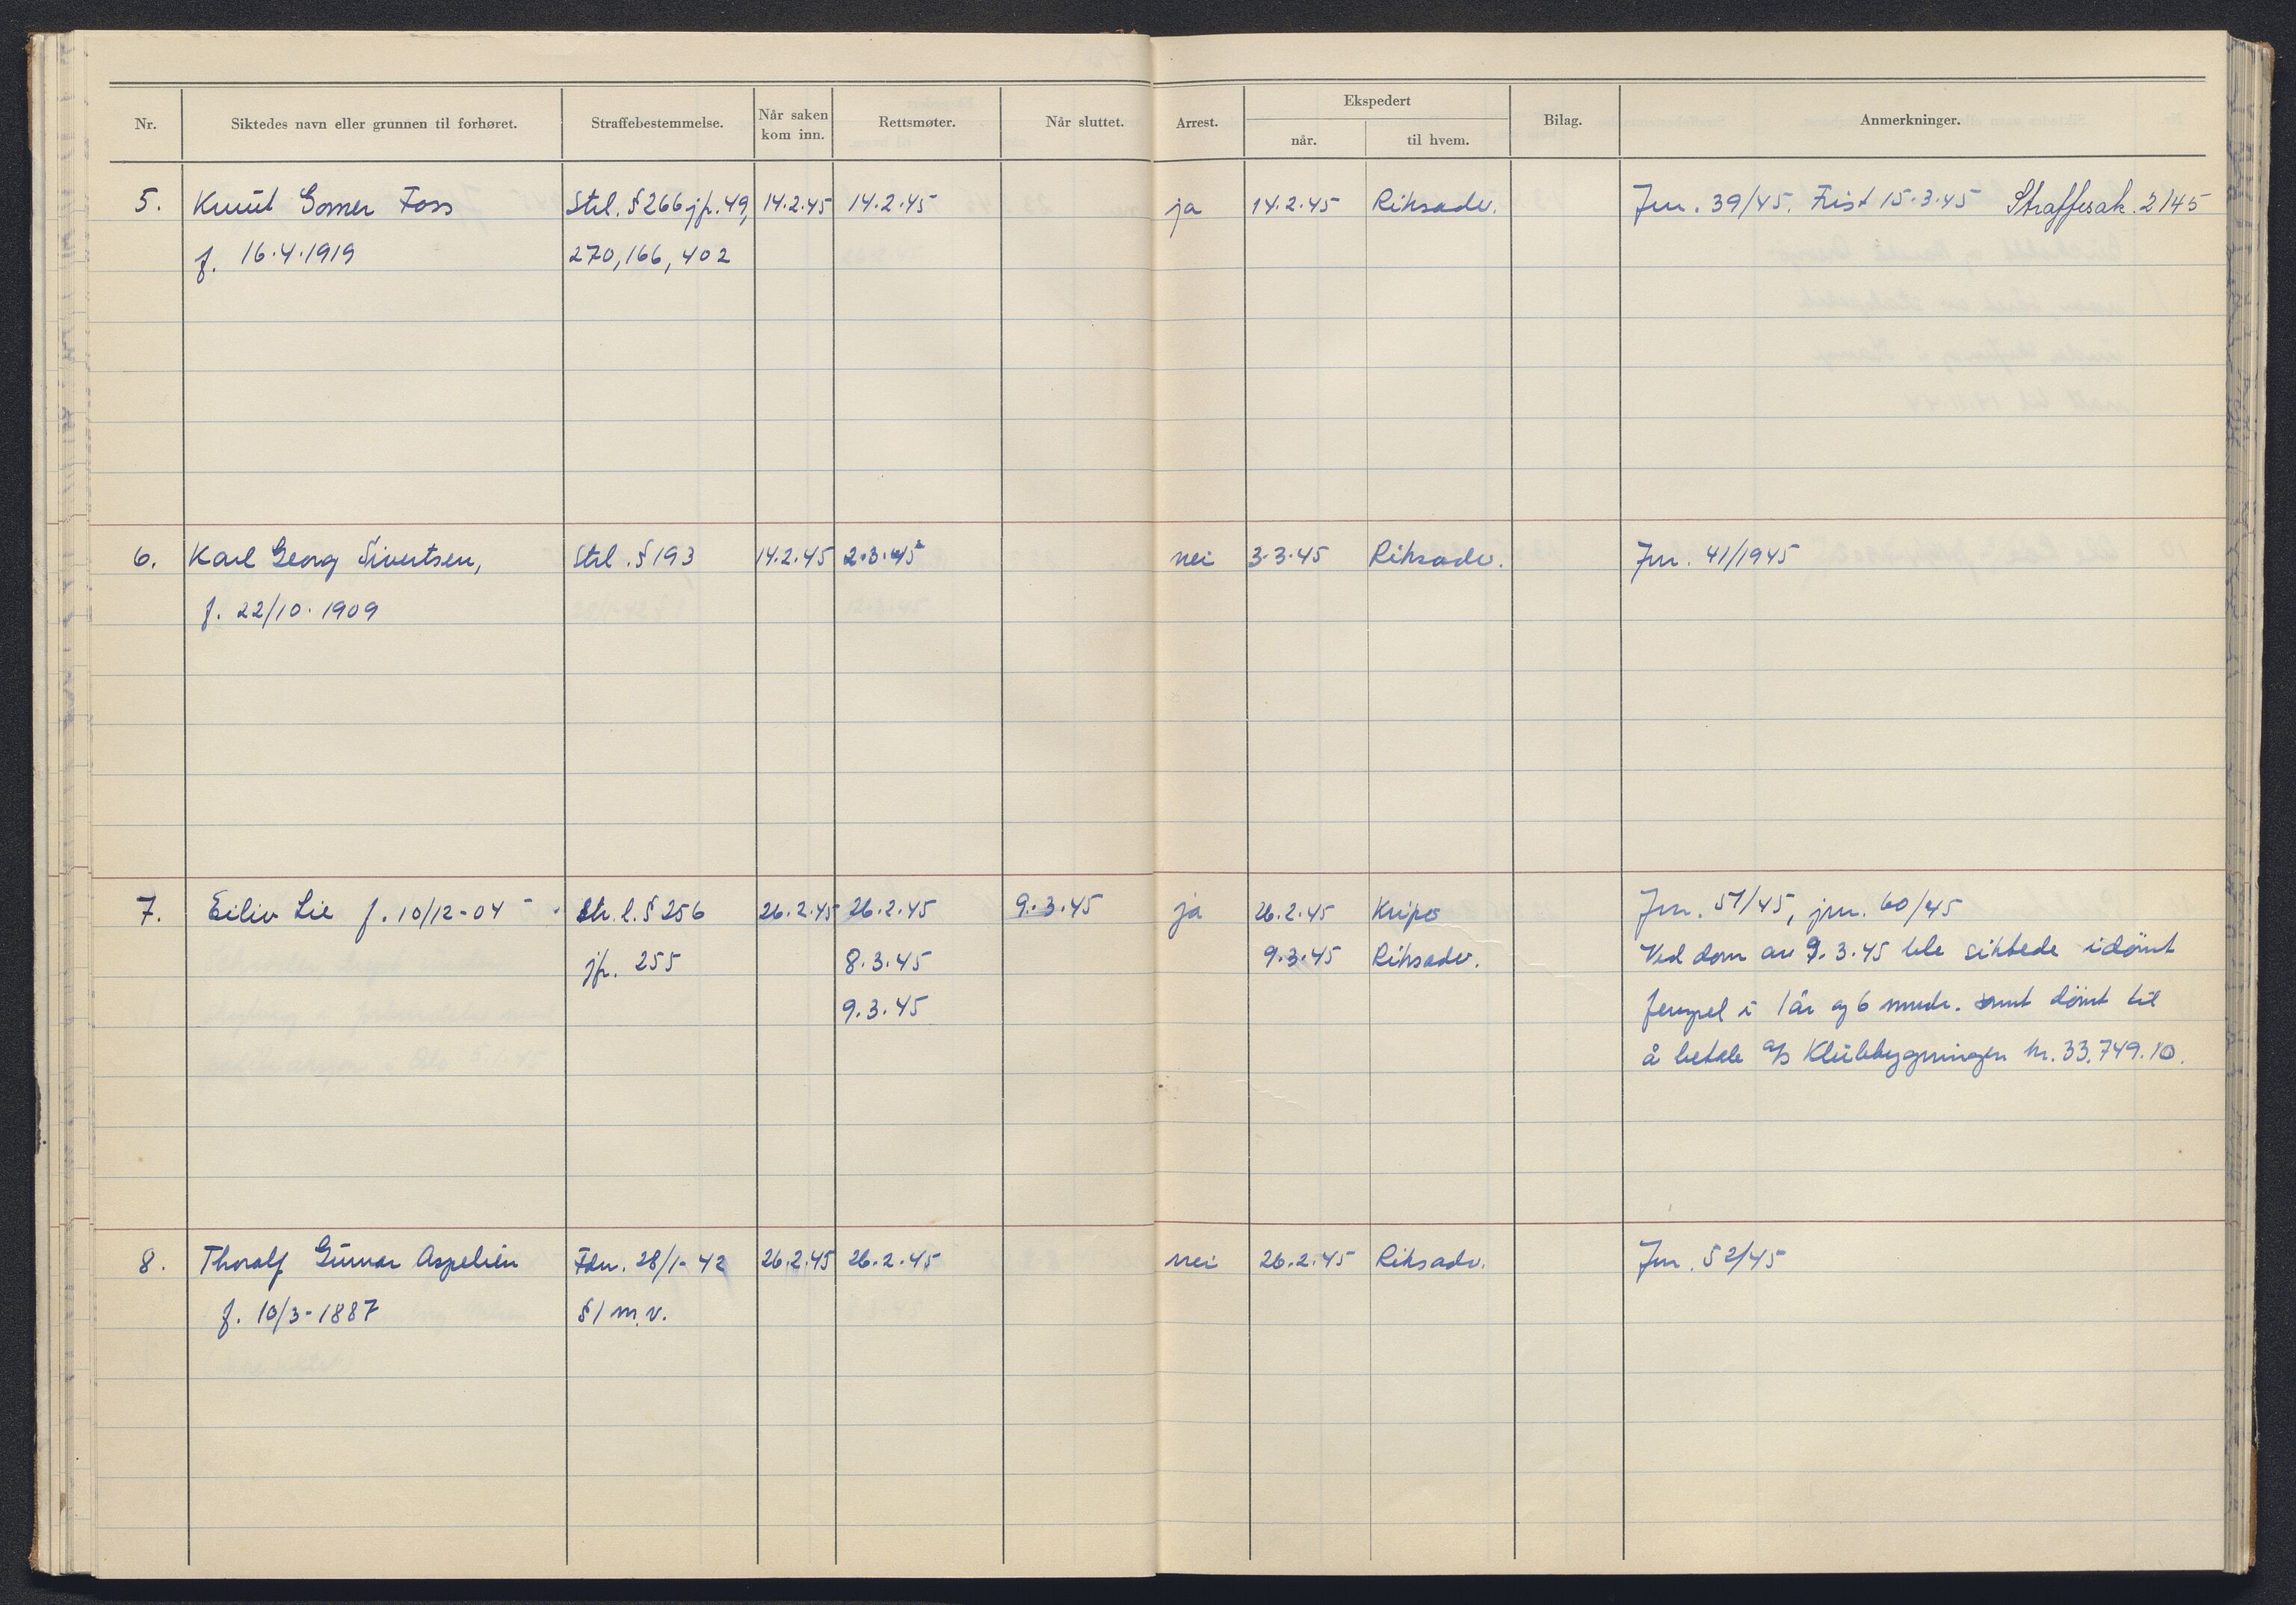 Nr.
Siktedes navn eller grunnen til forhøret.
Straffebestemmelse.
Når saken
kom inn.
Rettsmøter.
Når sluttet.
Arrest.
Ekspedert
når.
til hvem.
Bilag.
Anmerkninger.
5. Knut Gomer Foss Strl. § 266 jfr. 49, 14.2.45 14.2.45 ja 14.2.45 Riksadv. Jnr. 39/45. Frist 15.3.45 Straffesak. 2/45
f. 16.4.1919 270, 166, 402
6. Karl Georg Sivertsen, Strl. § 193 14.2.45 2.3.45 nei 3.3.45 Riksadv. Jnr. 41/1945
f. 22/10.1909
7. Eiliv Lie f. 10/12-04 Str.l. § 256 26.2.45 26.2.45 9.3.45 ja 26.2.45 Kripo Jnr. 51/45, jnr. 60/45
jfr. 255 8.3.45 9.3.45 Riksadv. Ved dom av 9.3.45 ble siktede idømt
9.3.45 fengsel i 1 år og 6 mndr. samt dømt til
å betale A/S Klubbygningen kr. 33.749.10.
8. Thoralf Gunnar Aspelien Fdn. 28/1-42 26.2.45 26.2.45 nei 26.2.45 Riksadv. Jnr. 52/45
f. 10/3-1887 § 1 m.v.